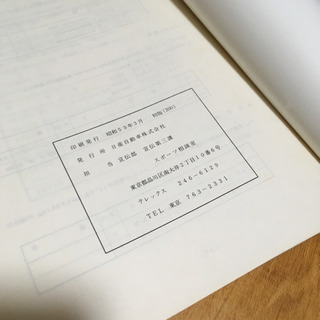 印刷発行 昭和59年3月 初版(200)
発行所 日産自動車株式会社
担当 宣伝部 宣伝第三課
スポーツ相談室
東京都品川区南大井2丁目19番6号
テレックス 246-6129
TEL 東京 763-2331